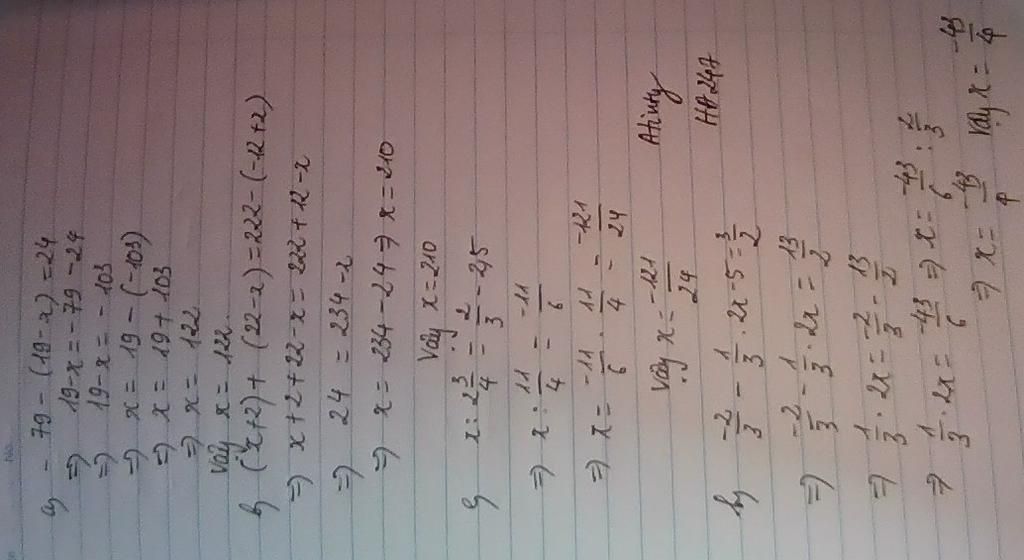 a, - 79 - (19 - x) = 24
=> 19 - x = - 79 - 24
=> 19 - x = - 103
=> x = 19 - (-103)
=> x = 19 + 103
=> x = 122
Vậy x = 122.
b, (x + 2) + (22 - x) = 222 - (-12 + x)
=> x + 2 + 22 - x = 222 + 12 - x
=> 24 = 234 - x
=> x = 234 - 24 => x = 210
Vậy x = 210
x : 2 3/4 = 2/3 - 2,5
=> x : 11/4 = -11/6
=> x = -11/6 . 11/4 = -121/24
Vậy x = -121/24
HĐ 247
b, -2/3 - 1/3 . 2x - 5 = 3/2
=> -2/3 - 1/3 . 2x = 13/2
=> 1/3 . 2x = -2/3 - 13/2
=> 1/3 . 2x = -43/6 => x = -43/6 : 2/3
=> x = -43/4 Vậy x = -43/4